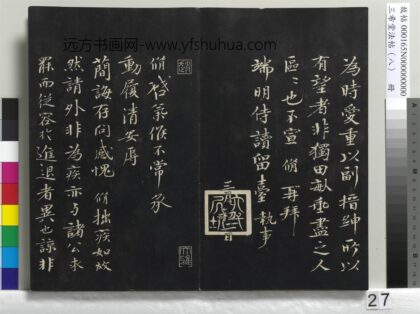 远方书画网-www.yfshuhua.com
為時愛重以副搢紳所以
有望者非獨田畝垂盡之人
區〻也不宣脩再拜
端明侍讀留臺執事
三月 日
脩啓氣候不常承
動履清安辱
簡誨存問感愧脩拙疾如故
然請外非為疾亦與諸公求
罷而從容於進退者異也諒非
三希堂法帖(八) 冊
故帖 000165N00000000
27